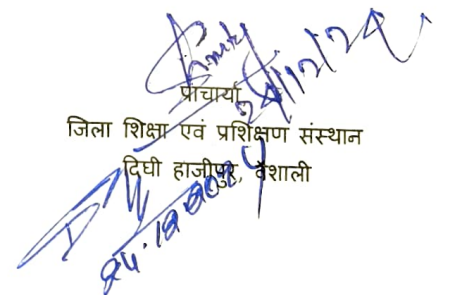 24/12/24
प्राचार्या
जिला शिक्षा एवं प्रशिक्षण संस्थान
दिघी हाजीपुर, वैशाली